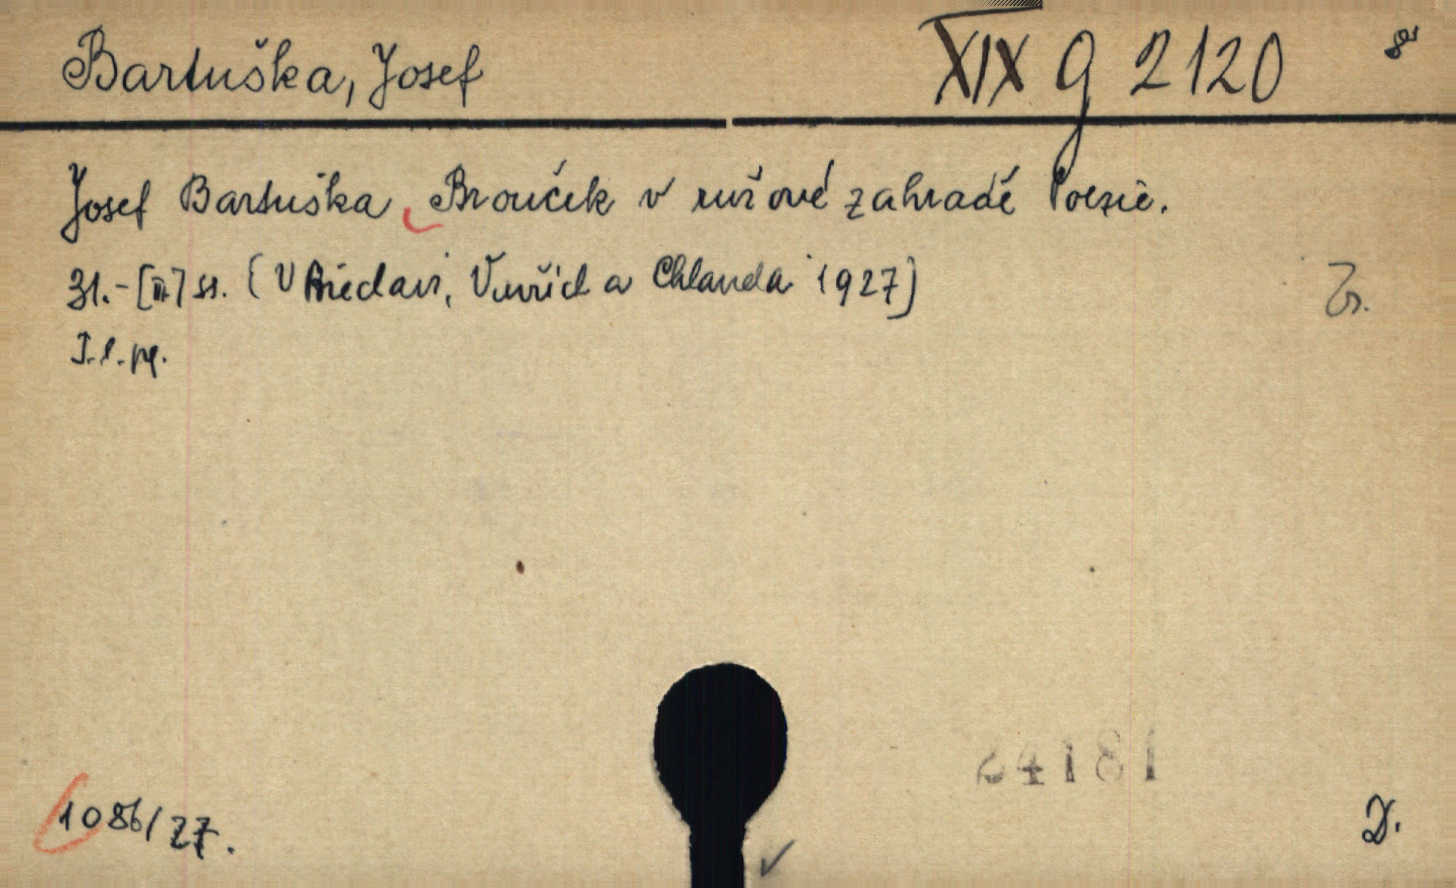 Bartuška, Josef
XIX G 2120
8°
Josef Bartuška, Brouček v růžové zahradě Poezie.
31.-[II.] ss. (V Břeclavi, Vavřič a Chlanda 1927)
I. l. pg.
24181
1086/27.
D.